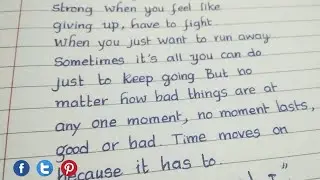 strong when you feel like
giving up, have to fight
when you just want to run away
Sometimes it's all you can do
just to keep going But no
matter how bad things are at
any one moment, no moment lasts,
good or bad. Time moves on
because it has to.